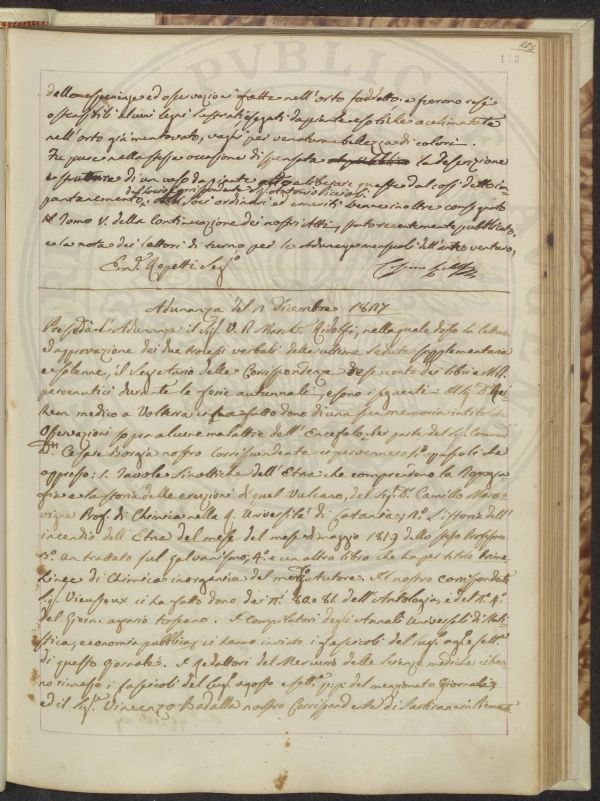 123
delle esperienze ed osservazioni fatte nell'orto suddetto: e furono resi
ostensibili alcuni legni lustrati segati da piante esotiche acclimatate
nell'orto già mentovato, vaghi per venatura e bellezza di colori.
Fu pure nella stessa occasione dispensata la descrizione
e struttura di un vaso da piante
del Socio Corrispondente
pantanamento, soci ordinari ed emeriti venne inoltre consegnato
il Tomo V. della Continuazione dei nostri Atti, statorecentemente pubblicato,
e la nota dei lettori di turno per le Adunanze mensuali dell'anno venturo,
Em. Repetti Seg.
Adunanza del 2 Dicembre 1827
Presede l'Adunanza il Sig. V. P. March. Ridolfi, nella quale dopo la lettura
ed approvazione dei due Processi verbali delle ultime sedute supplementaria
e solenne, il Segretario delle Corrispondenze rese conto dei libri e MSS.
pervenutici durante le ferie autunnali, e sono i seguenti: Il Sig. D.
medico a Volterra ci ha fatto dono di una sua memoria intitolata
Osservazioni sopra alcune malattie dell'Encefalo, per parte del Sig. Commend.
D. Cesare Borgia nostro Corrispondente ci pervennero gli opuscoli che
appresso: 1. Tavole Sinottiche dell'Etna che comprendono la Topogra
fia e la storia delle eruzioni di quel Vulcano, del Sig. D. Camillo Mara
vigna Prof. di Chimica nella R. Università di Catania; 2. L'istoria dell'
incendio dell'Etna del mese del mese di maggio 1819 dello stesso Professore
3. Un trattato sul Galvanismo; 4. e un altro libro che ha per titolo Prime
Linee di Chimica inorganica del med. Autore. Il nostro corrispondente
Sig. Vieusseux ci ha fatto dono dei N. 80 e 81 dell'Antologia, e del N. 4.
del Giorn. agrario toscano. I Compilatori degli Annali Universali di Stati
stica, economia pubblica ci hanno inviato i fascicoli del lug. ag. e sett.
di questo giornale. I Redattori del Mercurio delle Scienze mediche ci han
no rimesso i fascicoli del lug. agosto e sett. del menzionato Giornale
ed il Sig. Vincenzo Badalla nostro Corrispondente di Sartirana in Piemonte